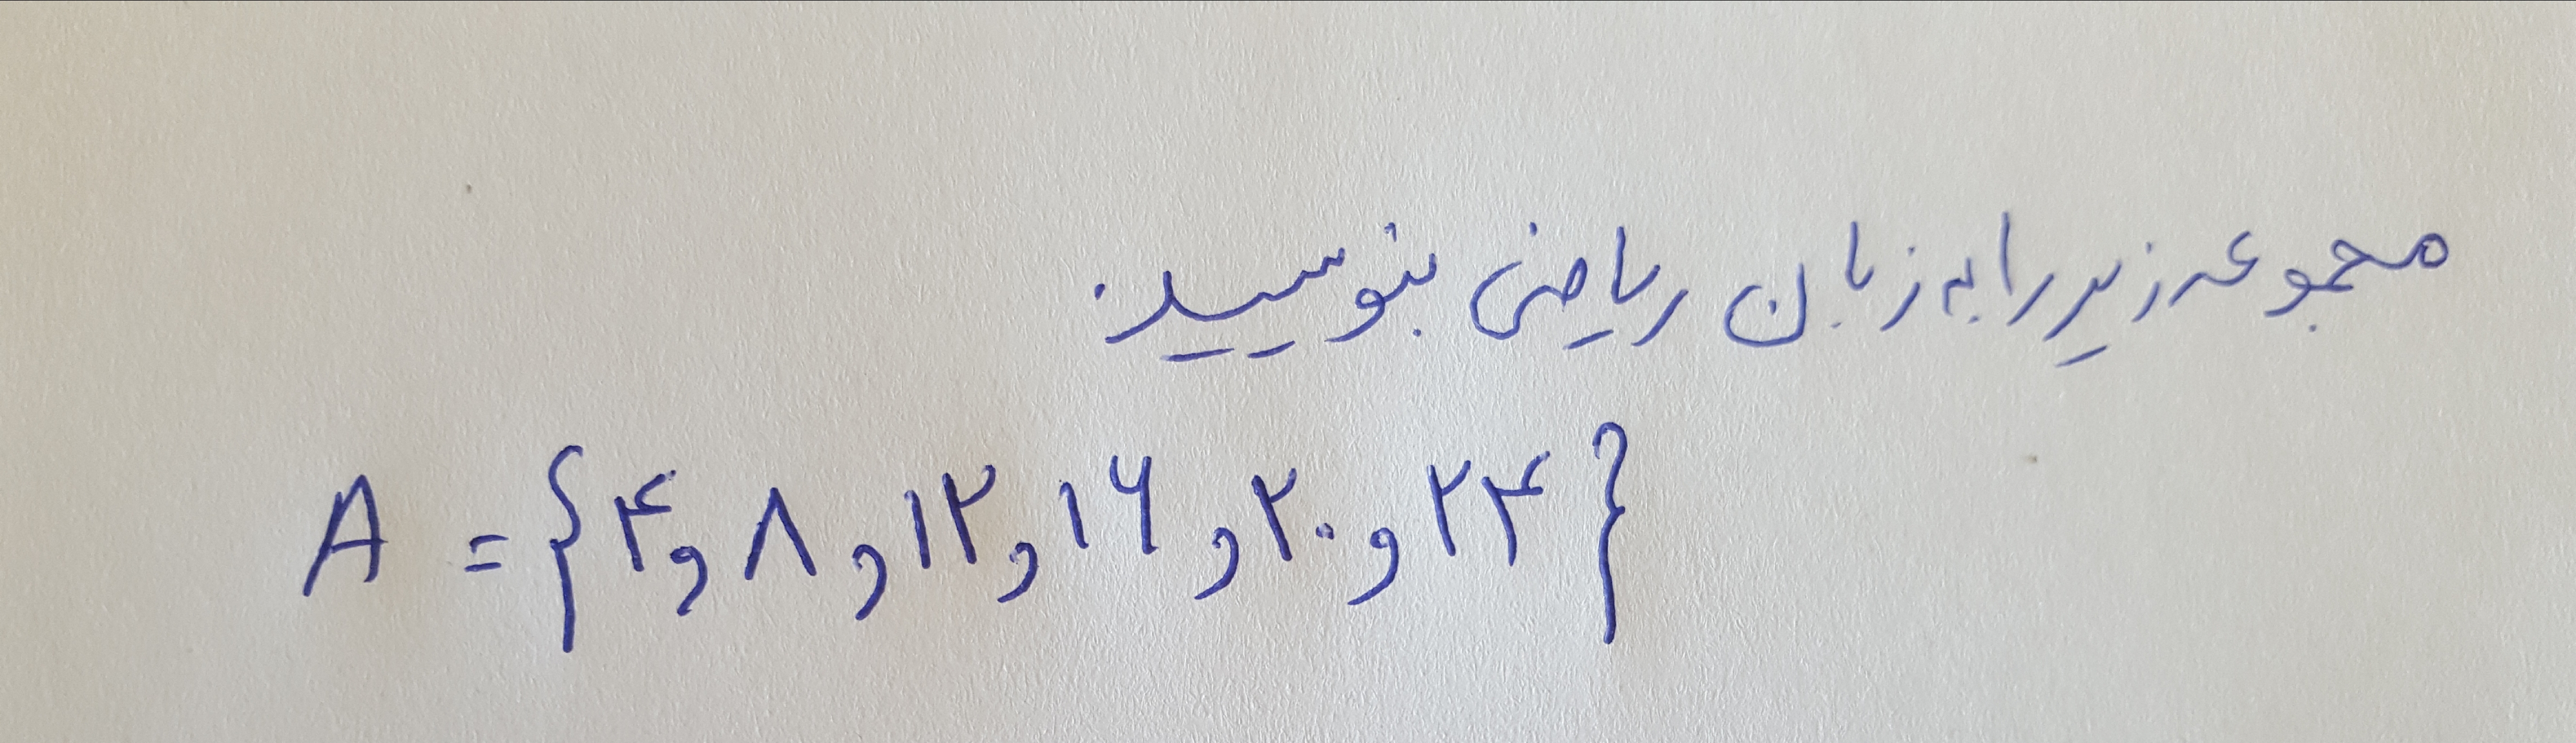 مجموعه زیر را به زبان ریاضی بنویسید.
A = {۴, ۸, ۱۲, ۱۶, ۲۰, ۲۴}